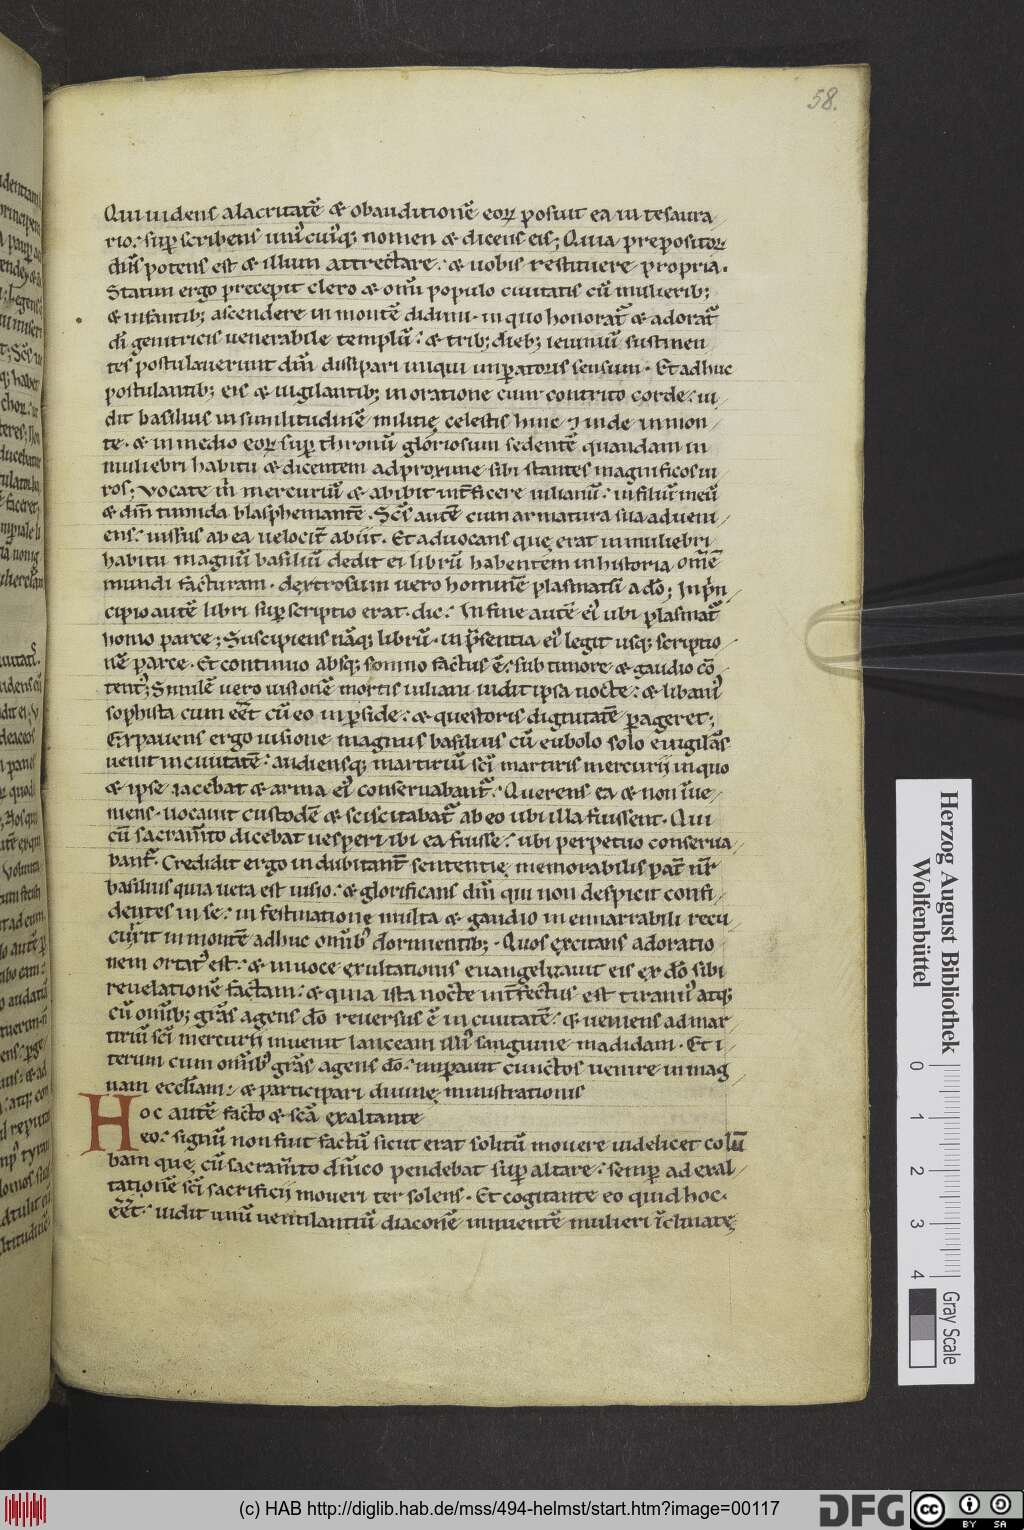 58.
Qui uidens alacritatē & obauditionē eoꝝ posuit ea in tesaura
rio. suꝑ scribens unicuiqꝫ nomen & dicens eis; Quia prepositoꝝ
dn̄s potens est & illum attrectare. & uobis restituere propria.
Statim ergo precepit clero & om̄i populo ciuitatis cū mulieribꝫ
& infantibꝫ ascendere in montē didimi. in quo honorat᷑ & adorat᷑
dī genitricis uenerabile templū. & tribꝫ diebꝫ ieiuniū sustinen
tes postulauerunt dm̄ dissipari iniqui imꝑatoris sensum. Et adhuc
postulantibꝫ eis & uigilantibꝫ in oratione cum contrito corde. ui
dit basilius in similitudinē militię celestis hinc ⁊ inde in mon
te. & in medio eoꝝ suꝑ thronū gloriosum sedentē quandam in
muliebri habitu & dicentem ad proxime sibi stantes magnificos ui
ros; Vocate m̄ mercuriū & abibit int̄ficere iulianū. in filiū meū
& dm̄ tumida blasphemantē. Sc̄s autē cum armatura sua adueni
ens. iussus ab ea uelocit̄ abiit. Et aduocans quę erat in muliebri
habitu magnū basiliū dedit ei librū habentem in historia om̄ē
mundi facturam. dextrosum uero hominē plasmatū a do; In prin
cipio autē libri suꝑ scriptio erat. dic. In fine autē ei᷒ ubi plasmat᷑
homo parce; Suscipiens nāqꝫ librū. in p̄sentia ei᷒ legit usqꝫ scriptio
nē parce. Et continuo absqꝫ somno factus ē. sub timore & gaudio cō
tent᷒; Similē uero uisionē mortis iuliani uidit ipsa nocte. & libani᷒
sophista cum eēt cū eo in ꝑside. & questoris dignitatē ꝑageret;
Expauens ergo uisione magnus basilius cū eubolo solo euigilās
uenit in ciuitatē. audiensqꝫ martiriū sc̄i martiris mercurii in quo
& ipse iacebat & arma ei᷒ conseruabant᷑. Querens ea & non inue
niens. uocauit custodē & sciscitabat᷑ ab eo ubi illa fuissent. Qui
cū sacram̄to dicebat uesperi ibi ea fuisse. ubi perpetuo conserua
bant᷑. Credidit ergo indubitant̄ sententię memorabilis pat̄ nr̄
basilius quia uera est uisio. & glorificans dm̄ qui non despicit confi
dentes in se. in festinatione multa & gaudio inenarrabili recu
currit in montē adhuc om̄ib᷒ dormientibꝫ. Quos excitans adoratio
nem ortat᷒ est. & in uoce exultationis euangelizauit eis ex dō sibi
reuelationē factam. & quia ista nocte int̄fectus est tirann᷒ atqꝫ
cū om̄ibꝫ grās agens dō reuersus ē in ciuitatē. & ueniens ad mar
tiriū sc̄i mercurii inuenit lanceam illi᷒ sanguine madidam. Et i
terum cum om̄ib᷒ grās agens dō. imꝑauit cunctos uenire in mag
nam eccl̄iam. & participari diuinę ministrationis
Hoc autē facto & sc̄a exaltante
eo. signū non fiut factū sicut erat solitū mouere uidelicet colū
bam quę cū sacram̄to dn̄ico pendebat suꝑ altare. semꝑ ad exal
tationē sc̄i sacrificii moueri ter solens. Et cogitante eo quid hoc
eēt. uidit unū uentilantiū diaconē innuentē mulieri īclinatę
Herzog August Bibliothek
Wolfenbüttel
0 1 2 3 4
Gray Scale
(c) HAB http://diglib.hab.de/mss/494-helmst/start.htm?image=00117
DFG
cc BY SA